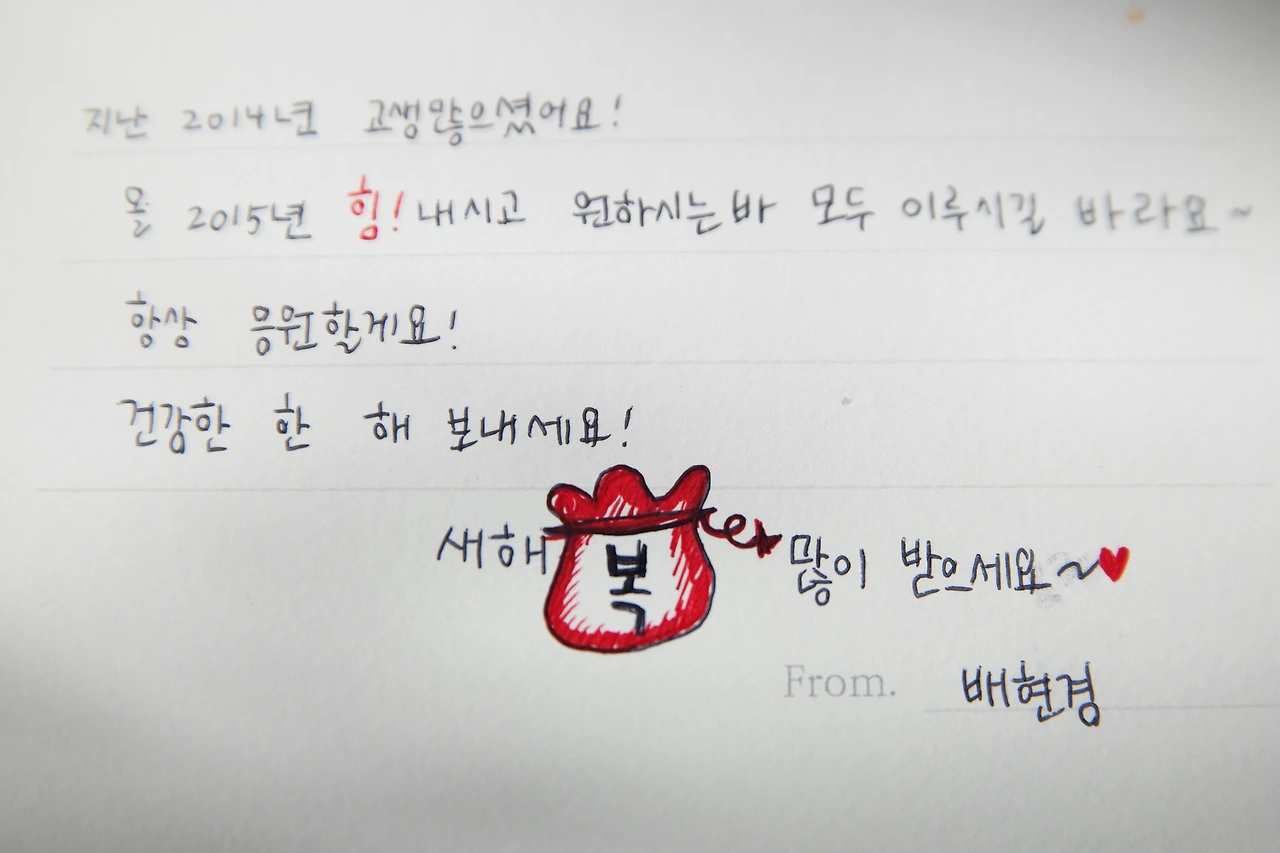 지난 2014년 고생많으셨어요!
올 2015년 힘! 내시고 원하시는바 모두 이루시길 바라요~
항상 응원할게요!
건강한 한 해 보내세요!
새해 복 많이 받으세요~♥
From. 배현경